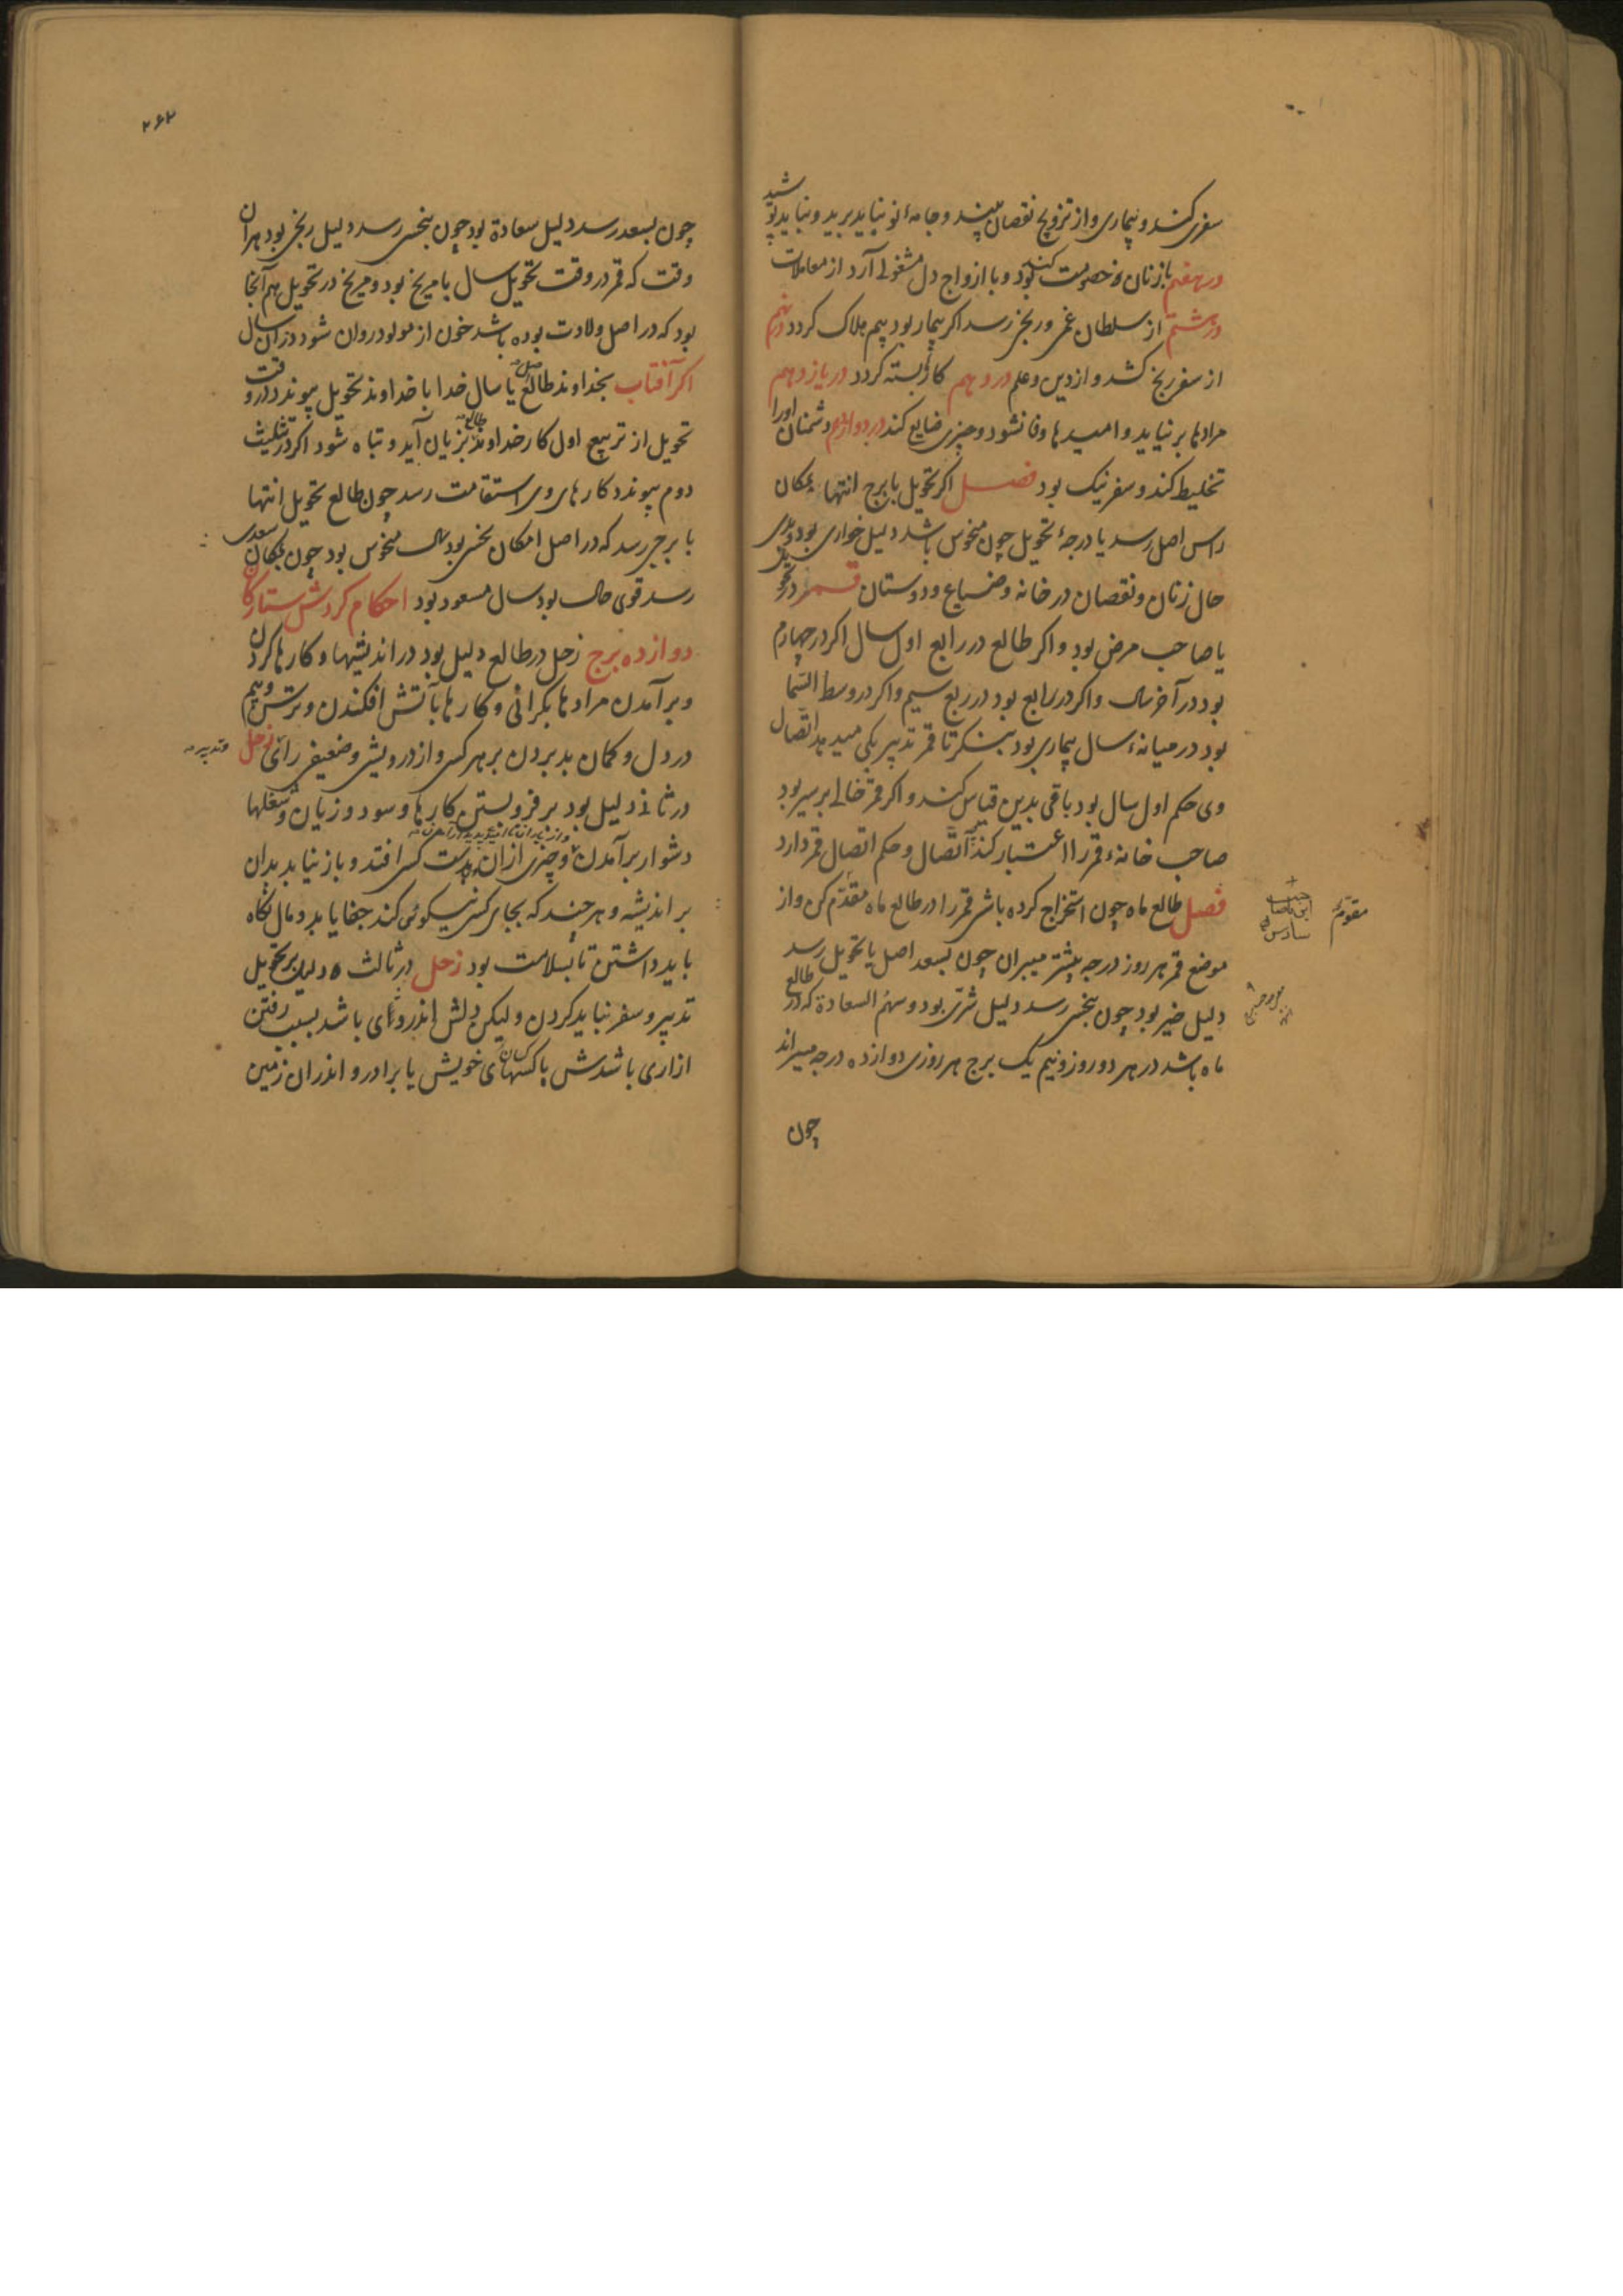 سفری کند و بیماری و از تزویج نقصان بیند و جامهٔ نو نباید برید و نباید پوشید
در هفتم با زنان خصومت کند و با ازواج دل مشغولی آرد از معاملات
در هشتم از سلطان غمی و رنجی رسد اکر بیمار بود بیم هلاک کردد در نهم
از سفر رنج کشد و از دین و علم در دهم کارش بسته کردد در یازدهم
مرادها بر نیاید و امیدها وفا نشود و چیزی ضایع کند در دوازدهم دشمنان او را
تخلیط کند و سفر نیک بود فصل اکر تحویل با برج انتها بمکان
راس اصل رسد یا درجهٔ تحویل چون منحوس باشد دلیل خواری بود و بدی
حال زنان و نقصان در خانه و ضیاع و دوستان قمر در تحویل
یا صاحب مرض بود و اکر طالع در رابع اول سال اکر در چهارم
بود در آخر سال و اکر در سابع بود در ربع سیم و اکر در وسط السما
بود در میانهٔ سال بیماری بود بنکر تا قمر تدبیر بکی میدهد اتصال
وی حکم اول سال بود باقی بدین قیاس کنند و اکر قمر خالی السیر بود
صاحب خانهٔ قمر را اعتبار کند اتصال و حکم اتصال قمر دارد
فصل طالع ماه چون استخراج کرده باشی قمر را در طالع ماه مقدّم کن و از
موضع قمر هر روز درجه بیشتر میبران چون بسعد اصل یا تحویل رسد
دلیل خیر بود چون بنحس رسد دلیل شرّی بود و سهم السعادة که در طالع
ماه باشد در هر دو روز و نیم یک برج هر روزی دوازده درجه میبراند
چون
مقوّم
۲۶۲
چون بسعد رسد دلیل سعادة بود چون بنحس رسد دلیل رنجی بود هر آن
وقت که قمر در وقت تحویل سال با مریخ بود و مریخ در تحویل هم آنجا
بود که در اصل ولادت بوده باشد خون از مولود روان شود در آن سال
اکر آفتاب بخداوند طالع یا سال خدا با خداوند تحویل پیوندد در وقت
تحویل از تربیع اول کار خداوند طالع بزیان آید و تباه شود اکر در تثلیث
دوم پیوندد کارهای وی استقامت رسد چون طالع تحویل انتها
با برجی رسد که در اصل امکان نحسی بود سال منحوس بود چون بمکان سعدی
رسد قوی حال بود سال مسعود بود احکام کردش ستارکان
دوازده برج زحل در طالع دلیل بود در اندیشیها و کارها کردن
و بر آمدن مرادها بکرانی و کارها بآتش افکندن و ترس و بیم
در دل و کمان بد بردن بر هر کسی و از درویشی و ضعیفی رأی زحل
و تدبیر
در ثانی دلیل بود بر فرو بستن کارها و سود و زیان و شغلها
دشوار بر آمدن و چیزی از آن بدست کسی افتد و باز نیابد بدان
بر اندیشه و هر چند که بجای کسی نیکوئی کند جفا یابد و مال نکاه
باید داشتن تا بسلامت بود زحل در ثالث دلیل بر تحویل
تدبیر و سفر نباید کردن و لیکن دلش اندروای باشد بسبب رفتن
ازاری باشدش با کسهای خویش یا برادر و اندران زمین